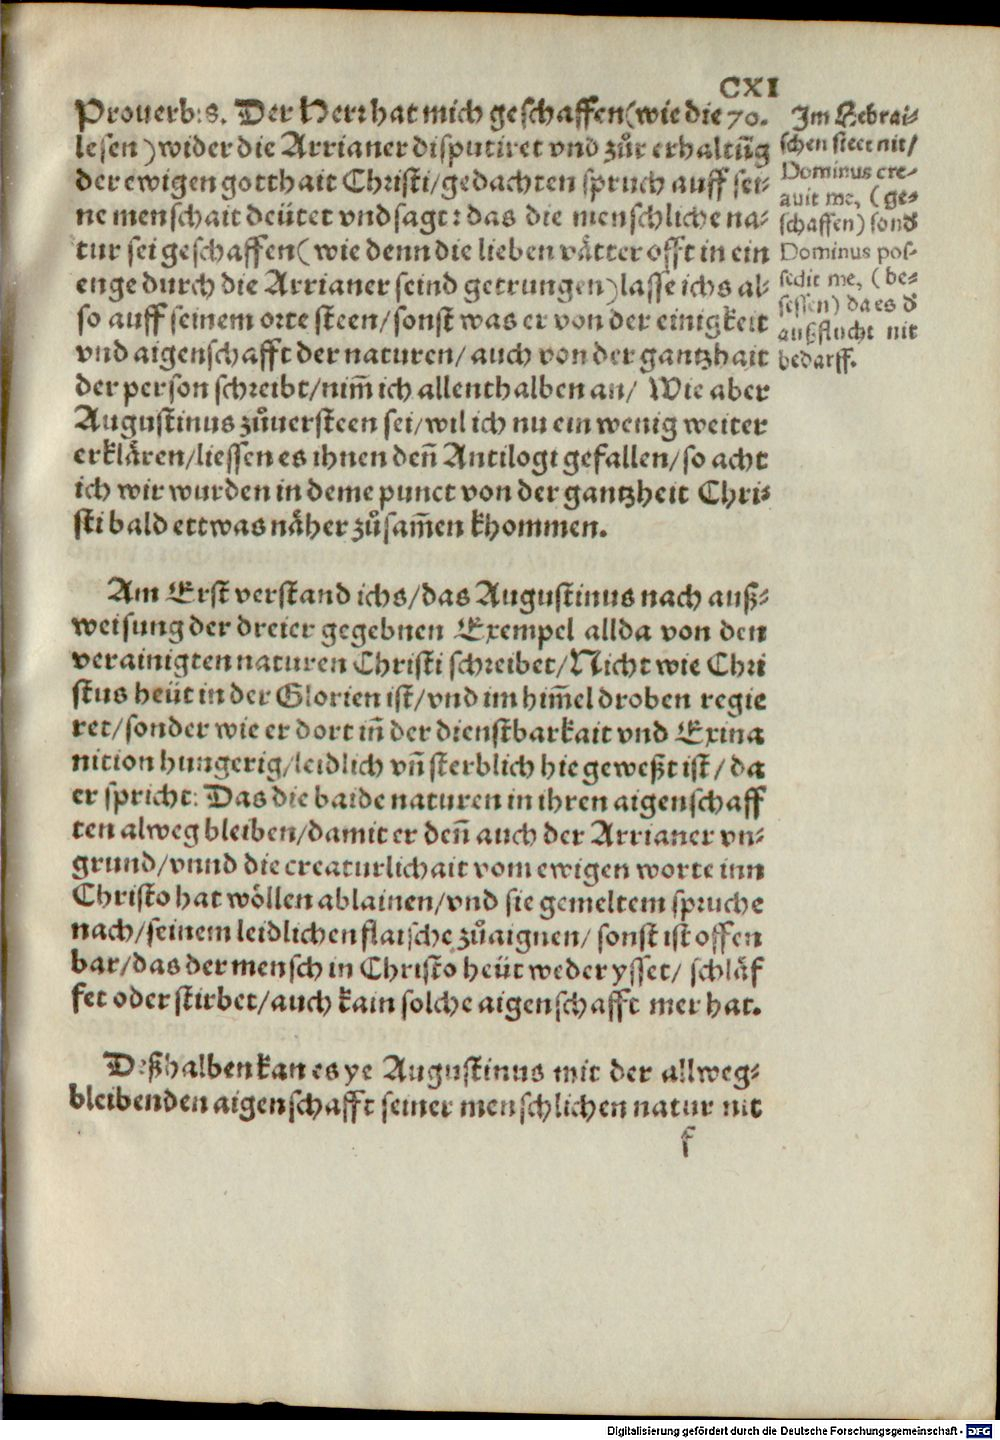 CXI
Prouerb:8. Der Herr hat mich geschaffen (wie die 70.
lesen) wider die Arrianer disputiret vnd zůr erhaltũg
der ewigen gotthait Christi/gedachten spruch auff sei-
ne menschait deütet vnd sagt: das die menschliche na-
tur sei geschaffen (wie denn die lieben vätter offt in ein
enge durch die Arrianer seind getrungen) lasse ichs al-
so auff seinem orte steen/sonst was er von der einigkeit
vnd aigenschafft der naturen/ auch von der gantzhait
der person schreibt/nim̃ ich allenthalben an/ Wie aber
Augustinus zůuersteen sei/wil ich nu ein wenig weiter
erklären/liessen es ihnen deñ Antilogi gefallen/so acht
ich wir wurden in deme punct von der gantzheit Chri-
sti bald ettwas näher zůsam̃en khommen.
Im Hebrai-
schen steet nit/
Dominus cre-
auit me, (ge-
schaffen) sond
Dominus pos-
sedit me, (be-
sessen) da es d
außflucht nit
bedarff.
Am Erst verstand ichs/das Augustinus nach auß-
weisung der dreier gegebnen Exempel allda von den
verainigten naturen Christi schreibet/Nicht wie Chri
stus heüt in der Glorien ist/vnd im him̃el droben regie
ret/sonder wie er dort iñ der dienstbarkait vnd Exina
nition hungerig/leidlich vñ sterblich hie geweßt ist/ da
er spricht: Das die baide naturen in ihren aigenschaff
ten alweg bleiben/damit er deñ auch der Arrianer vn-
grund/vnnd die creaturlichait vom ewigen worte inn
Christo hat wöllen ablainen/vnd sie gemeltem spruche
nach/seinem leidlichen flaische zůaignen/ sonst ist offen
bar/das der mensch in Christo heüt weder ysset/ schläf
fet oder stirbet/auch kain solche aigenschafft mer hat.
Deßhalben kan es ye Augustinus mit der allweg-
bleibenden aigenschafft seiner menschlichen natur nit
f
Digitalisierung gefördert durch die Deutsche Forschungsgemeinschaft - DFG